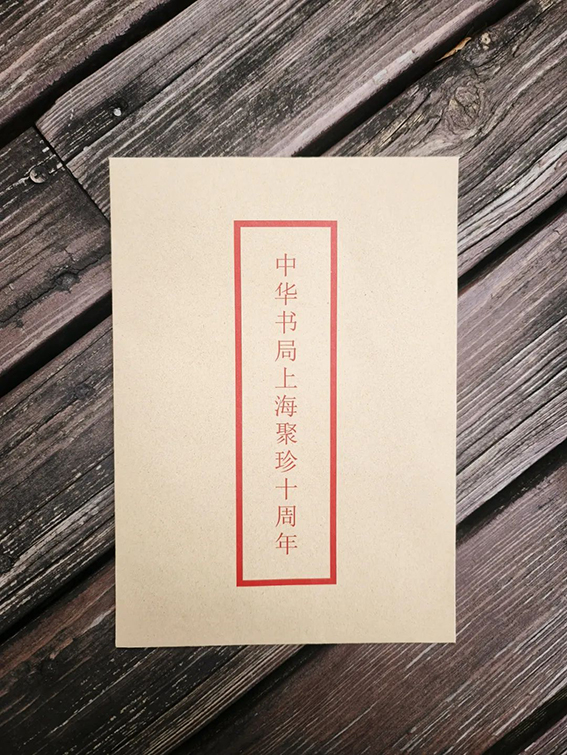 中华书局上海聚珍十周年